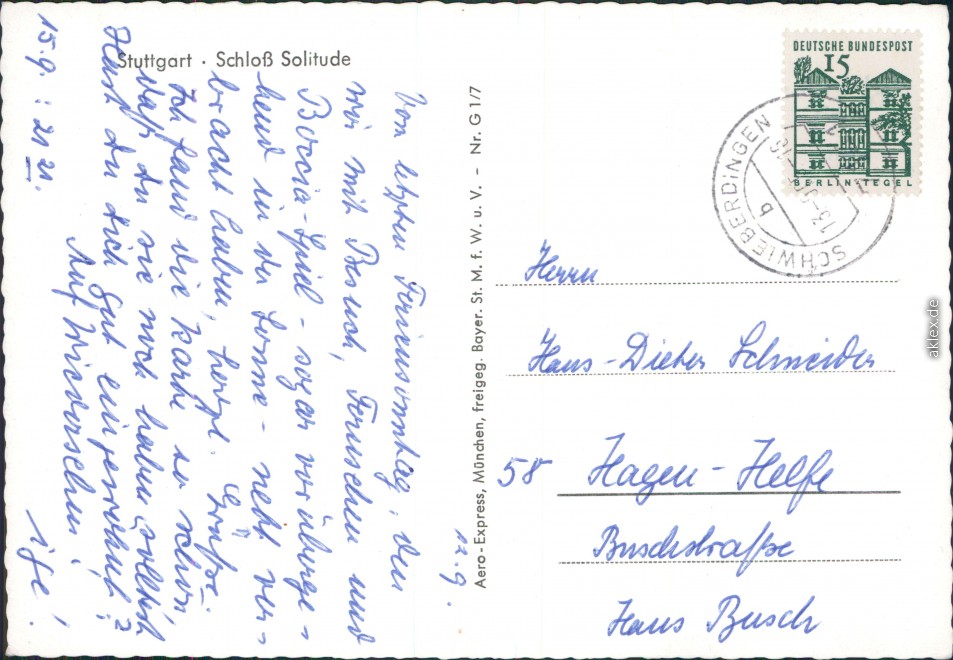 Stuttgart · Schloß Solitude
12. 9.
Vom letzten Feriensonntag, den
wir mit Besuch, Fernsehen und
Boccia-Spiel - sogar vorüberge-
hend in der Sonne - nett ver-
bracht haben, herzl. Grüße.
Ich fand die Karte so schön
daß du sie noch haben solltest
Hast du dich gut eingewöhnt?
Auf Wiedersehen!
15. 9. : 21 21.
Aero-Express, München, freigeg. Bayer. St. M. f. W. u. V. – Nr. G 1/7
DEUTSCHE BUNDESPOST
15
BERLIN-TEGEL
SCHWIEBERDINGEN
b
Herrn
Hans-Dieter Schneider
58 Hagen-Helfe
Buschstraße
Haus Busch
aklex.de